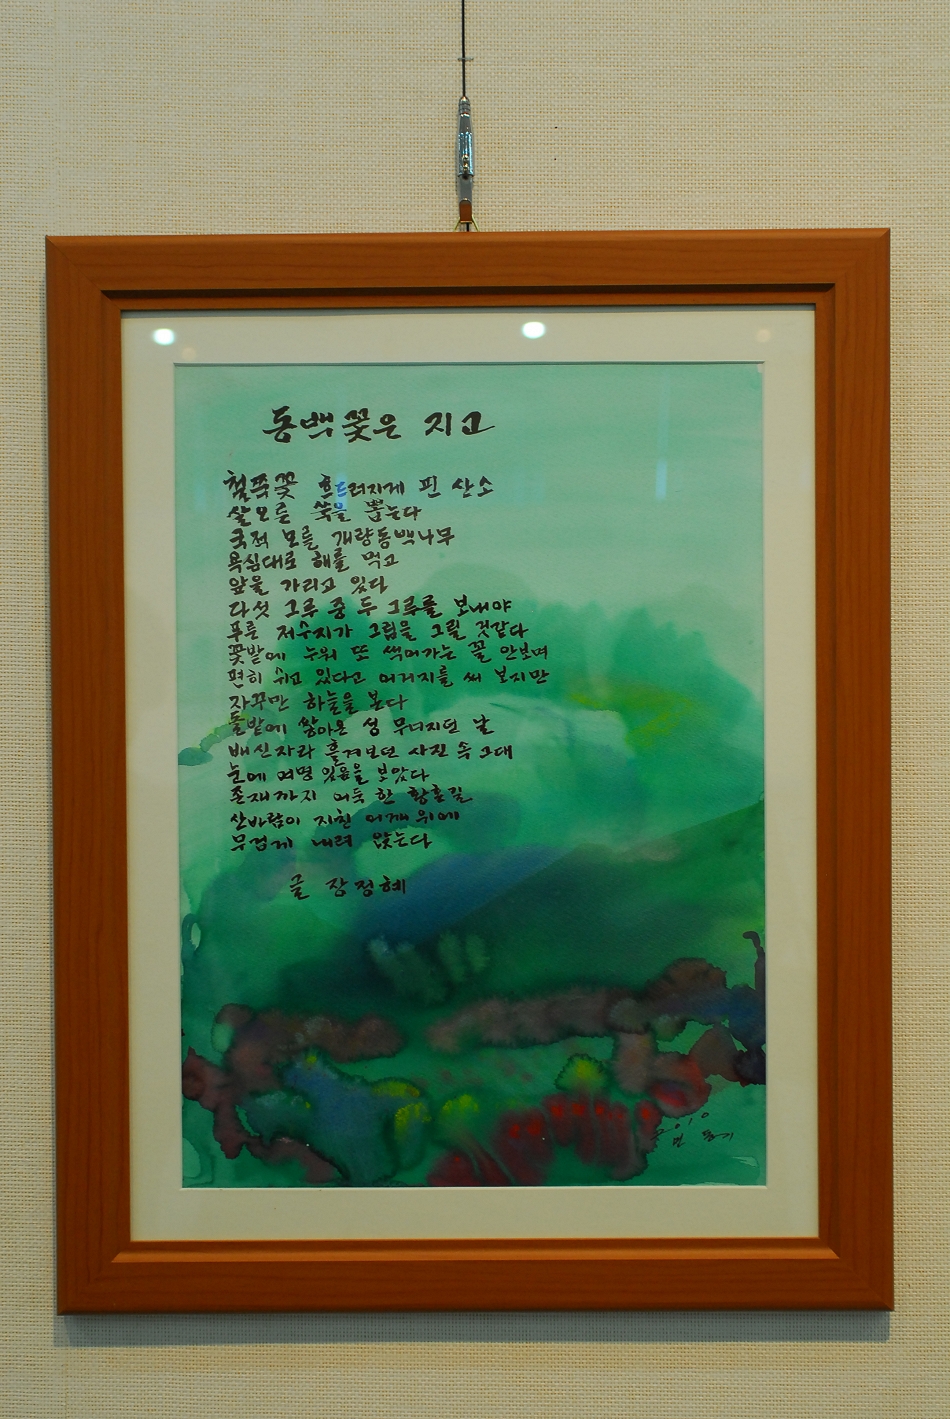 동백꽃은 지고
철쭉꽃 흐드러지게 핀 산소
살오른 쑥을 뽑는다
국적 모를 개량동백나무
욕심대로 해를 먹고
앞을 가리고 있다
다섯 그루 중 두 그루를 보내야
푸른 저수지가 그림을 그릴 것같다
꽃밭에 누워 또 썩어가는 꼴 안보며
편히 쉬고 있다고 어거지를 써 보지만
자꾸만 하늘을 본다
돌밭에 쌓아온 성 무너지던 날
배신자라 흘겨보던 사진 속 그대
눈에 여명 있음을 보았다
존재까지 어둑 한 황혼길
산바람이 지친 어깨 위에
무겁게 내려 앉는다
글 장정혜
2010